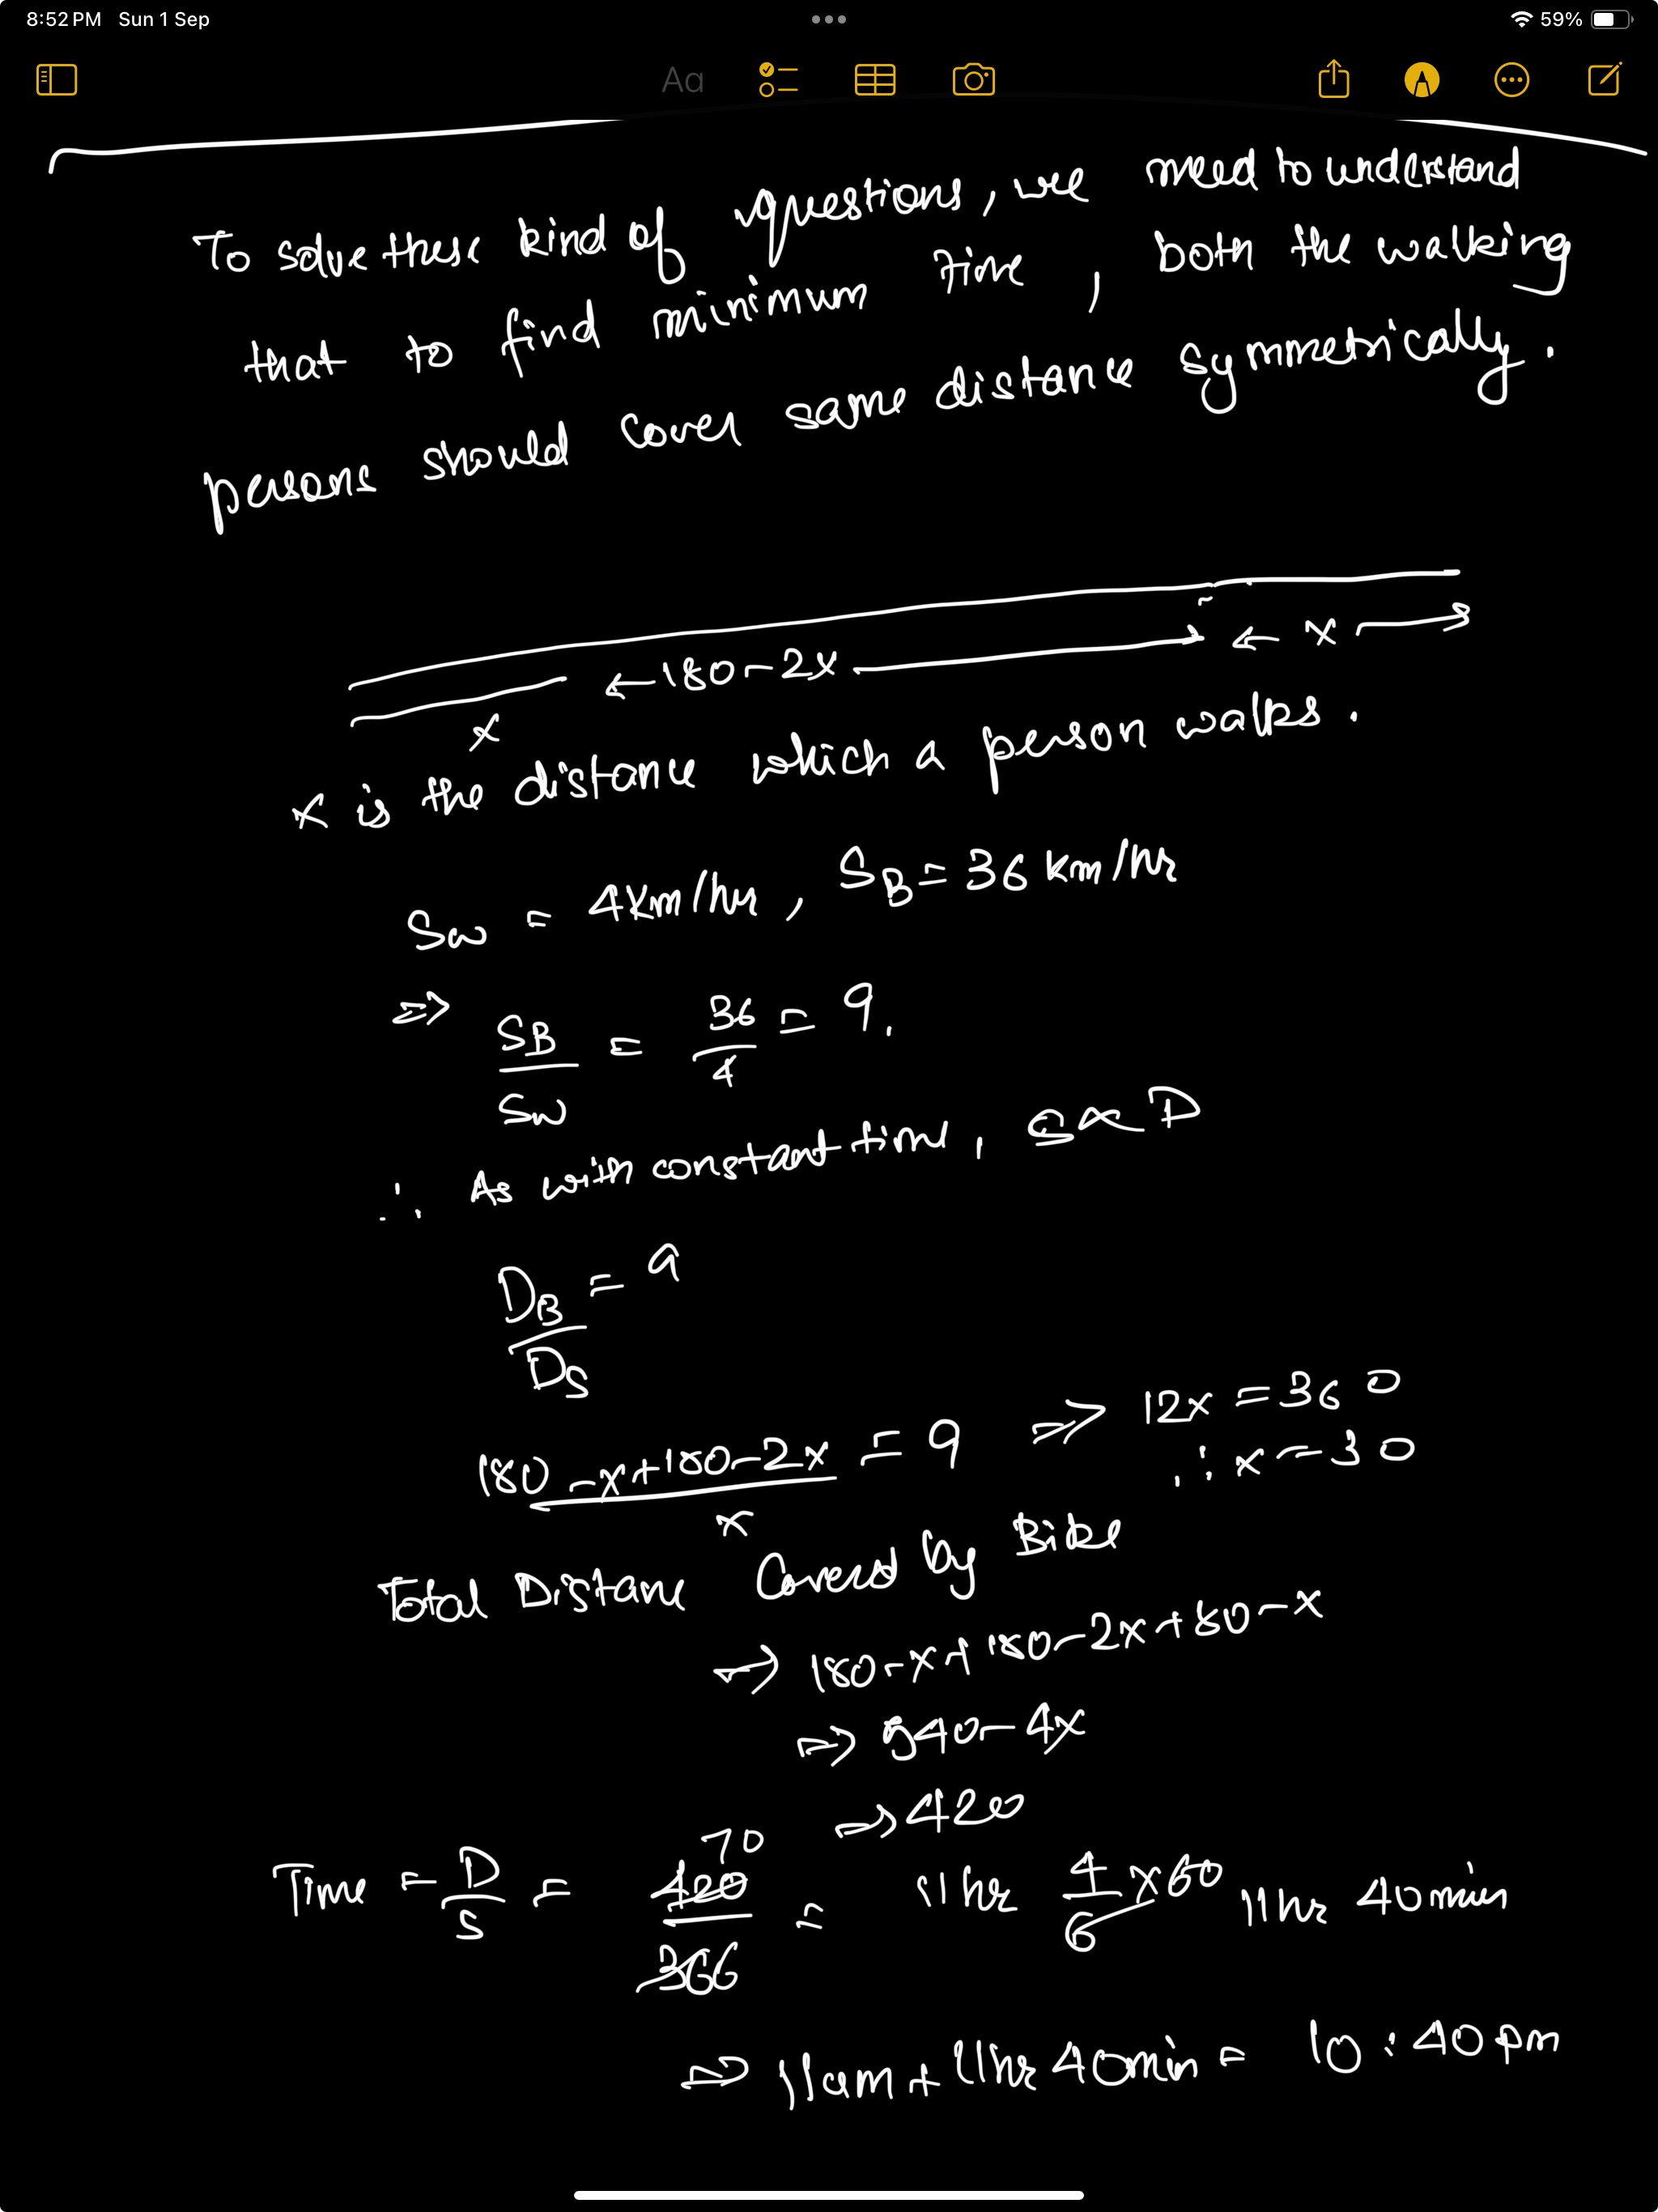 8:52 PM Sun 1 Sep 59%
Aa
To solve these kind of questions, we need to understand
that to find minimum time, both the walking
persons should cover same distance symmetrically.
x ←180-2x→ ← x →
x is the distance which a person walks.
Sw = 4km/hr, SB = 36 km/hr
⇒ SB/Sw = 36/4 = 9.
∴ As with constant time, S∝D
DB/DS = 9
(180-x+180-2x)/x = 9 ⇒ 12x = 360
∴ x = 30
Total Distane Covered by Bike
⇒ 180-x+180-2x+80-x
⇒ 540-4x
⇒ 420
70
Time = D/S = 420/366 = 11hr 4/6 x60 11hr 40min
⇒ 11am + 11hr 40min = 10:40pm